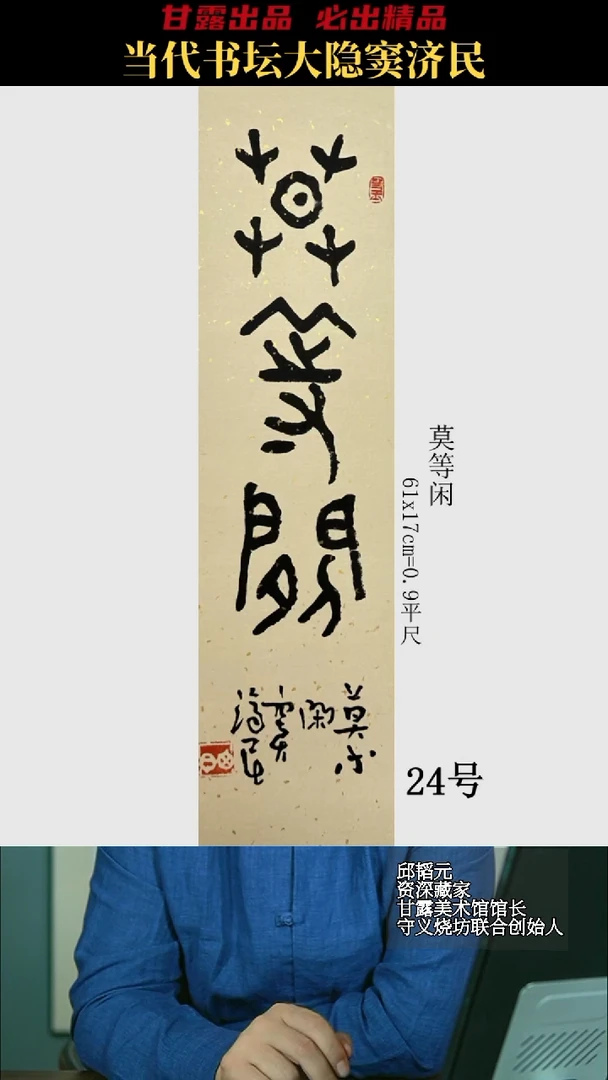 甘露出品 必出精品
当代书坛大隐窦济民
莫等闲
莫等闲
61x17cm=0.9平尺
莫等
闲
窦
济民
24号
邱韬元
资深藏家
甘露美术馆馆长
守义烧坊联合创始人